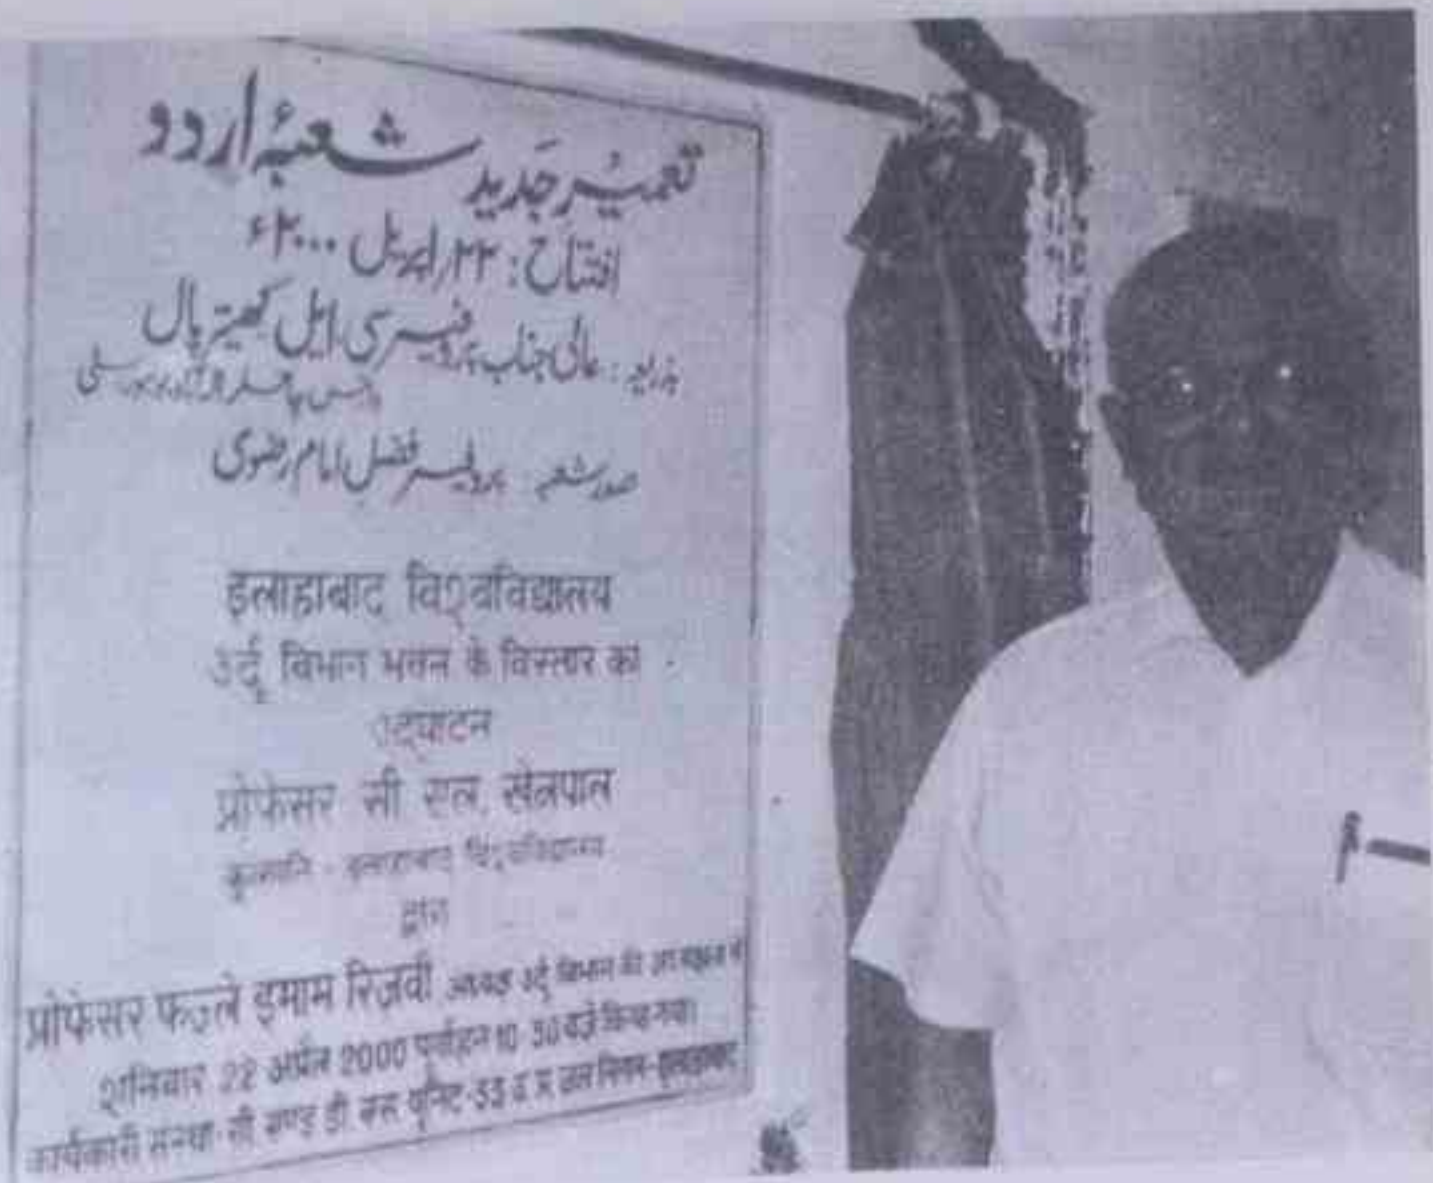 تعمیر جدید شعبۂ اردو
افتتاح : ۲۲/اپریل ۲۰۰۰ء
بذریعہ : عالی جناب پروفیسر سی ایل کھیتر پال
وائس چانسلر الہ آباد یونیورسٹی
صدر شعبہ پروفیسر فضل امام رضوی
इलाहाबाद विश्वविद्यालय
उर्दू विभाग भवन के विस्तार का
उद्घाटन
प्रोफेसर सी एल. खेत्रपाल
कुलपति - इलाहाबाद विश्वविद्यालय
द्वारा
प्रोफेसर फज़्ले इमाम रिज़वी अध्यक्ष उर्दू विभाग की अध्यक्षता में
शनिवार 22 अप्रैल 2000 पूर्वाहन 10-30 बजे किया गया।
कार्यकारी संस्था-सी एण्ड डी. एस यूनिट-33 उ प्र. जल निगम-इलाहाबाद